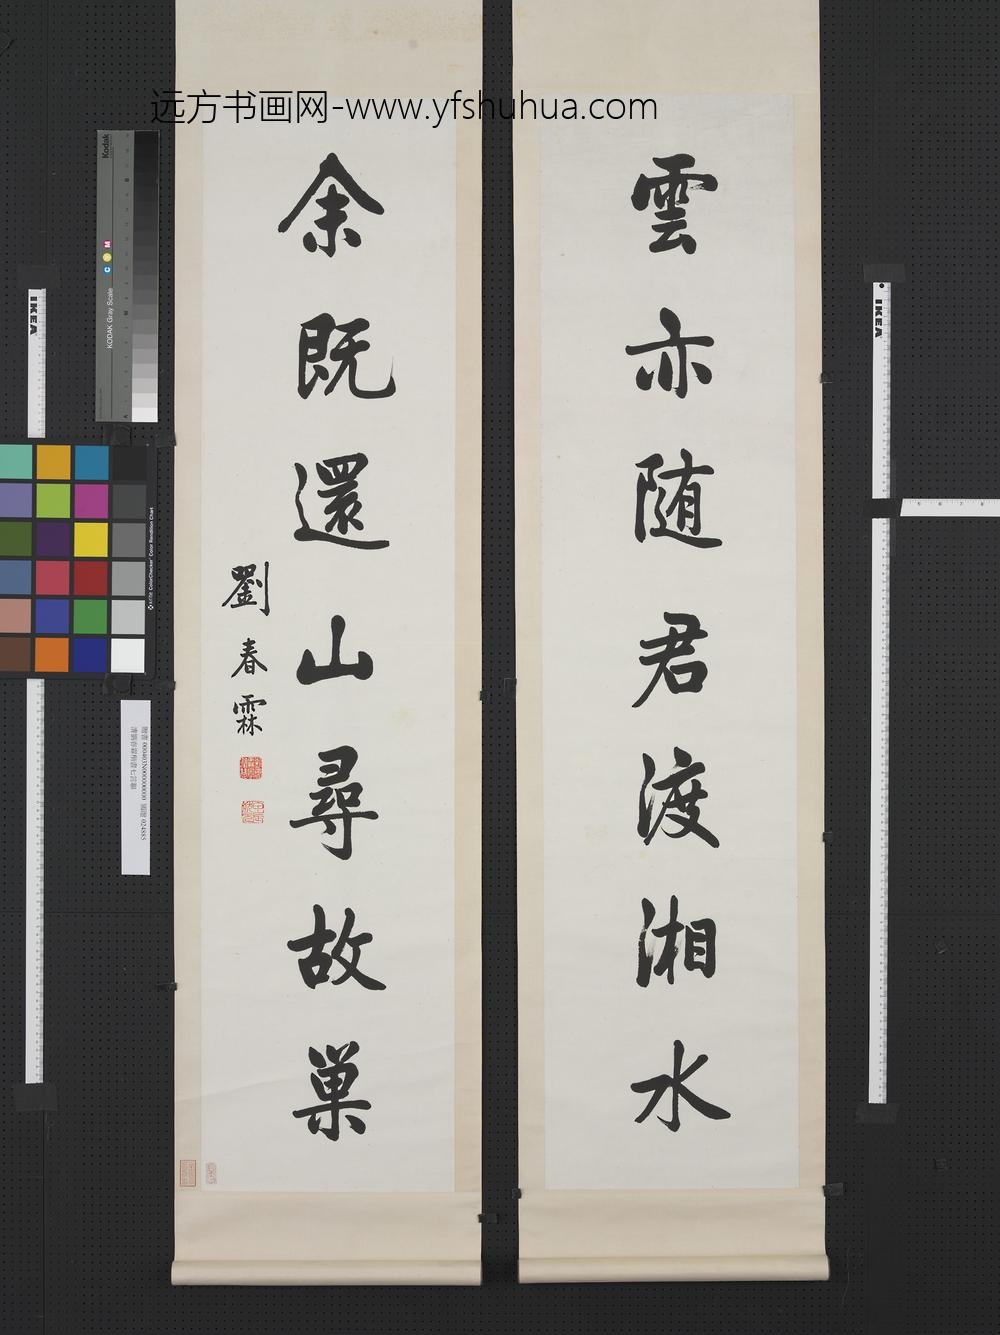 远方书画网-www.yfshuhua.com
雲亦随君渡湘水
余既還山尋故巢
劉春霖
Kodak
KODAK Gray Scale
C Y M
IKEA
IKEA
ColorChecker Color Rendition Chart